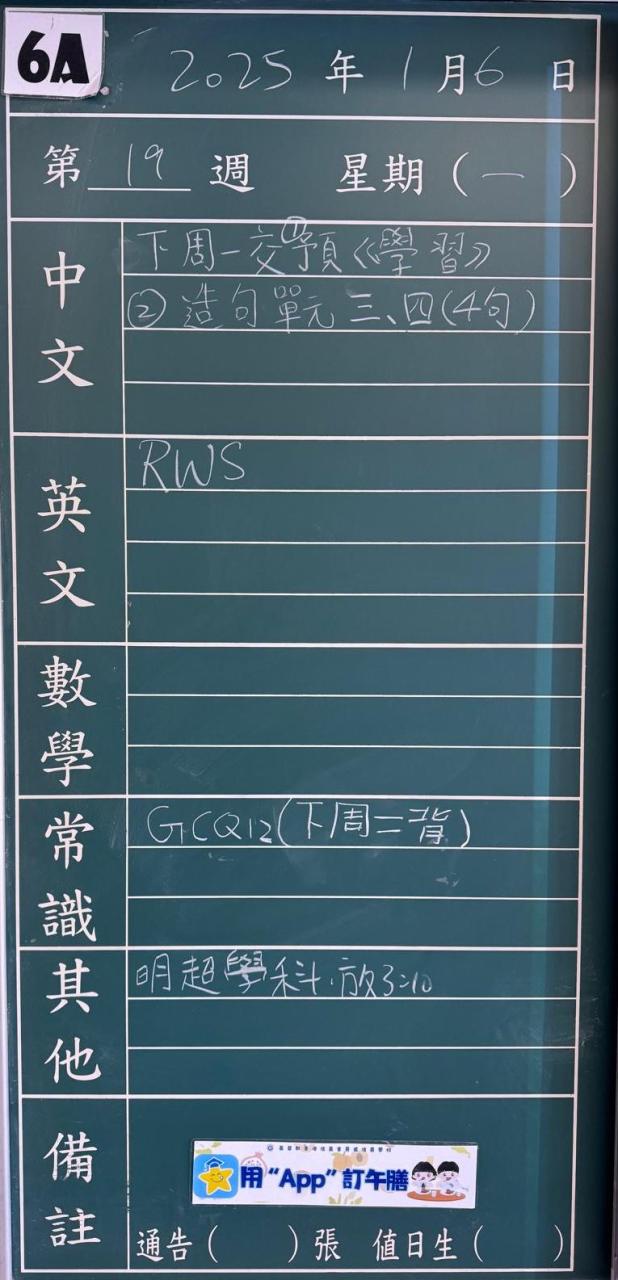 6A
2025 年 1 月 6 日
第 19 週 星期 (一)
中文
下周一交①預《學習》
②造句單元三、四(4句)
英文
RWS
數學
常識
GCQ12(下周二背)
其他
明超學科,放3:10
備註
用“App”訂午膳
通告( )張 值日生( )